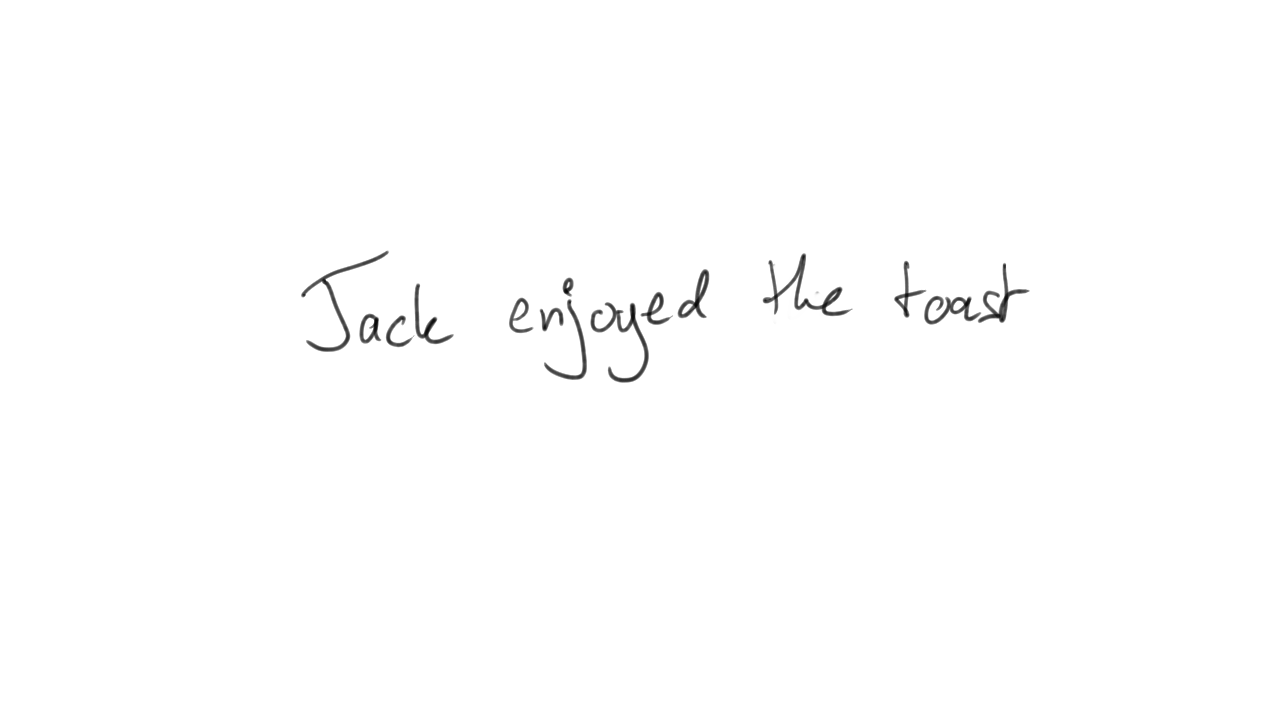 Jack enjoyed the toast